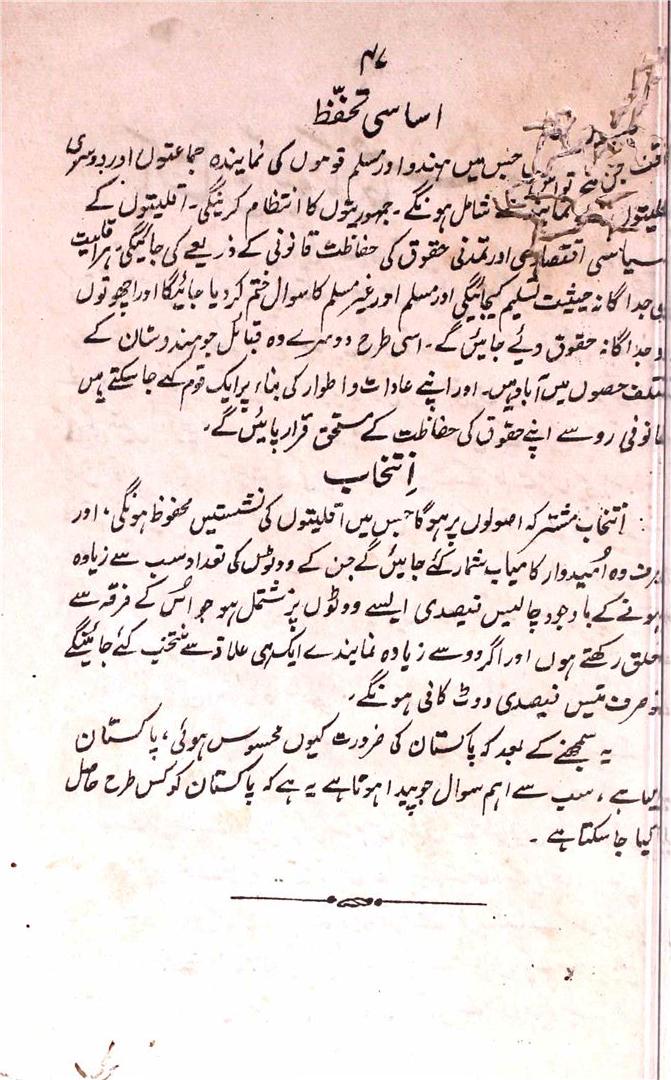 ۴۷
اساسی تحفّظ
جس میں ہندو اور مسلم قوموں کی نمایندہ جماعتوں اور دوسری
شامل ہونگے۔ جمہوریتوں کا انتظام کرینگی۔ اقلیتوں کے
سیاسی اقتصادی اور تمدنی حقوق کی حفاظت قانونی کے ذریعے کی جائیگی۔ ہر اقلیت
کی جداگانہ حیثیت تسلیم کیجائیگی اور مسلم اور غیر مسلم کا سوال ختم کر دیا جائیگا اور اچھوتوں
جداگانہ حقوق دیئے جائیں گے۔ اسی طرح دوسرے وہ قبائل جو ہندوستان کے
حصوں میں آباد ہیں۔ اور اپنے عادات و اطوار کی بناء پر ایک قوم کہے جا سکتے ہیں
قانونی رو سے اپنے حقوق کی حفاظت کے مستحق قرار پائیں گے۔
اِنتخاب
اِنتخاب مشترکہ اصولوں پر ہوگا جس میں اقلیتوں کی نشستیں محفوظ ہونگی، اور
صرف وہ اُمیدوار کامیاب شمار کئے جائیں گے جن کے ووٹس کی تعداد سب سے زیادہ
ہونے کے باوجود چالیس فیصدی ایسے ووٹوں پر مشتمل ہو جو اُس کے فرقہ سے
تعلق رکھتے ہوں اور اگر دو سے زیادہ نمایندے ایک ہی علاقہ سے منتخب کئے جائینگے
تو صرف تیس فیصدی ووٹ کافی ہونگے۔
یہ سمجھنے کے بعد کہ پاکستان کی ضرورت کیوں محسوس ہوئی، پاکستان
کیا ہے، سب سے اہم سوال جو پیدا ہوتا ہے یہ ہے کہ پاکستان کو کس طرح حاصل
کیا جا سکتا ہے۔